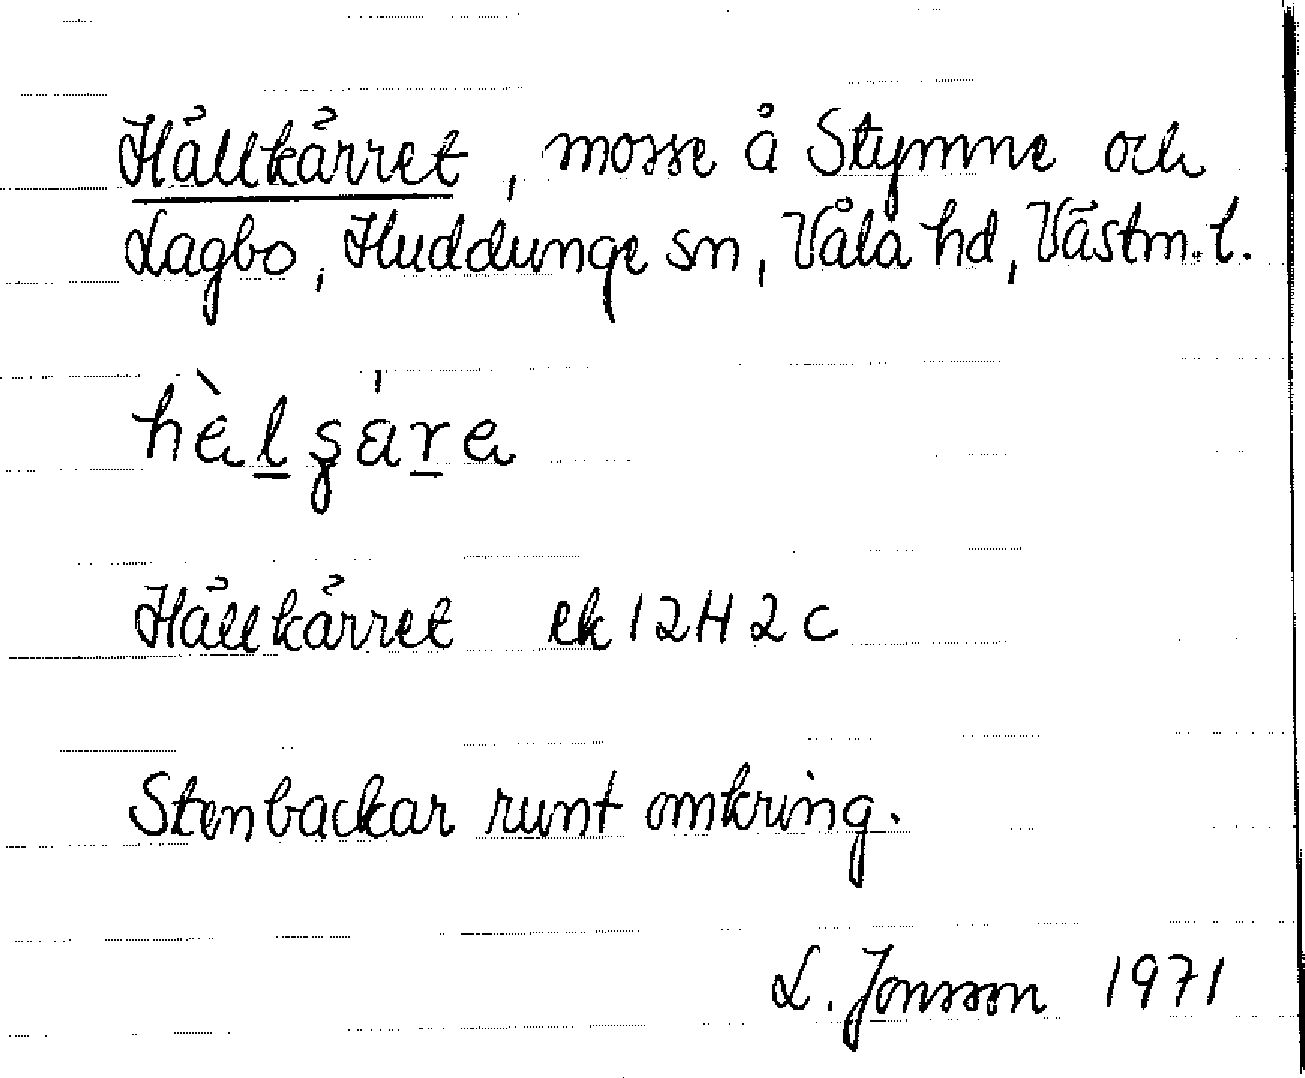 Hällkärret, mosse å Stymne och
Lagbo, Huddunge sn, Våla hd, Västm. l.
Hällkärret ek 12H2c
Stenbackar runt omkring.
L. Jonsson 1971